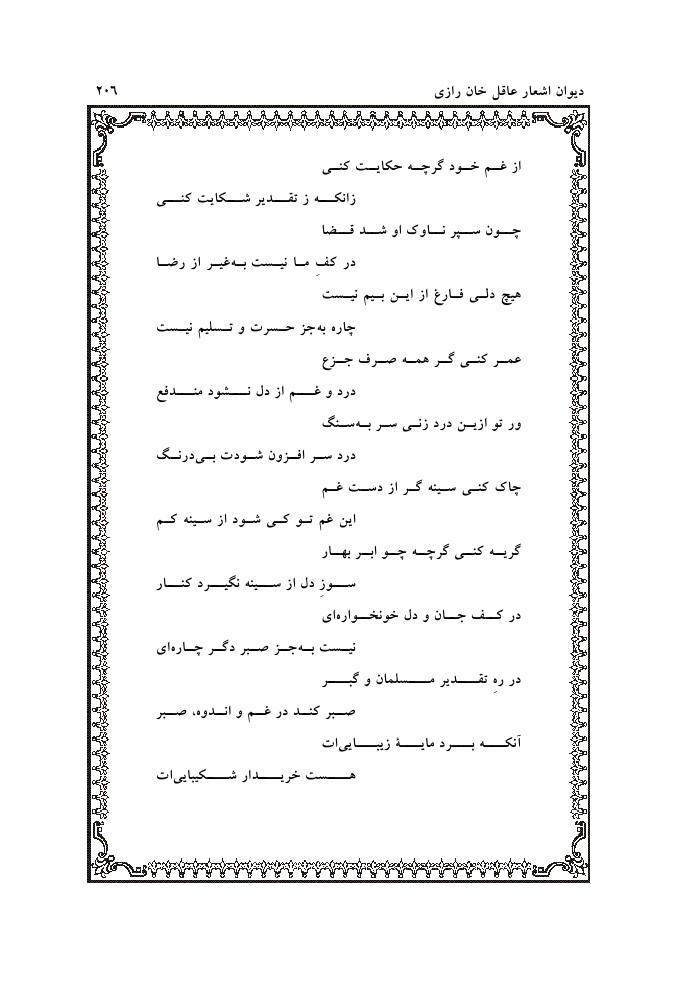 دیوان اشعار عاقل خان رازی ۲۰۶
از غم خود گرچه حکایت کنی
زانکه ز تقدیر شکایت کنی
چون سپر ناوک او شد قضا
در کفِ ما نیست به‌غیر از رضا
هیچ دلی فارغ از این بیم نیست
چاره به‌جز حسرت و تسلیم نیست
عمر کنی گر همه صرف جزع
درد و غم از دل نشود مندفع
ور تو ازین درد زنی سر به‌سنگ
درد سر افزون شودت بی‌درنگ
چاک کنی سینه گر از دست غم
این غم تو کی شود از سینه کم
گریه کنی گرچه چو ابر بهار
سوزِ دل از سینه نگیرد کنار
در کف جان و دل خونخواره‌ای
نیست به‌جز صبر دگر چاره‌ای
در رهِ تقدیر مسلمان و گبر
صبر کند در غم و اندوه، صبر
آنکه برد مایۀ زیبایی‌ات
هست خریدار شکیبایی‌ات